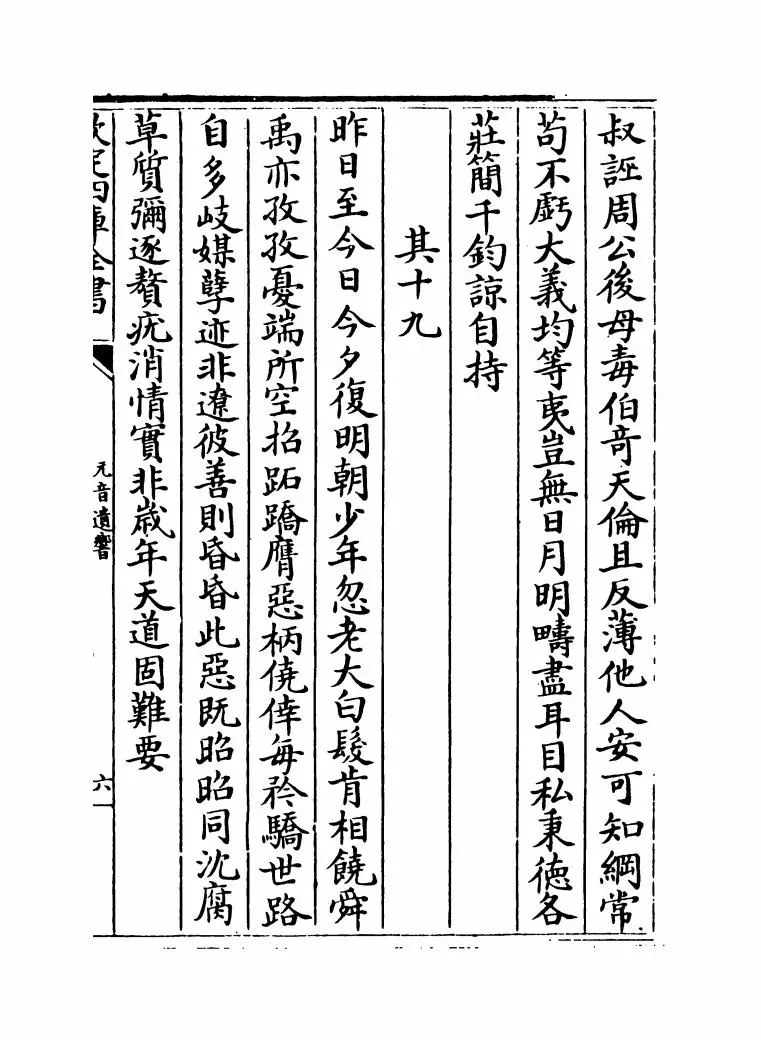 叔誣周公後母毒伯奇天倫且反薄他人安可知綱常
苟不虧大義均等夷豈無日月明疇盡耳目私秉徳各
莊簡千鈞諒自持
其十九
昨日至今日今夕復明朝少年忽老大白髮肯相饒舜
禹亦孜孜憂端所空招跖蹻膺惡柄僥倖每矜驕世路
自多岐媒孽迹非遼彼善則昏昏此惡既昭昭同沈腐
草質彌逐贅疣消情實非歳年天道固難要
欽定四庫全書
元音遺響
六